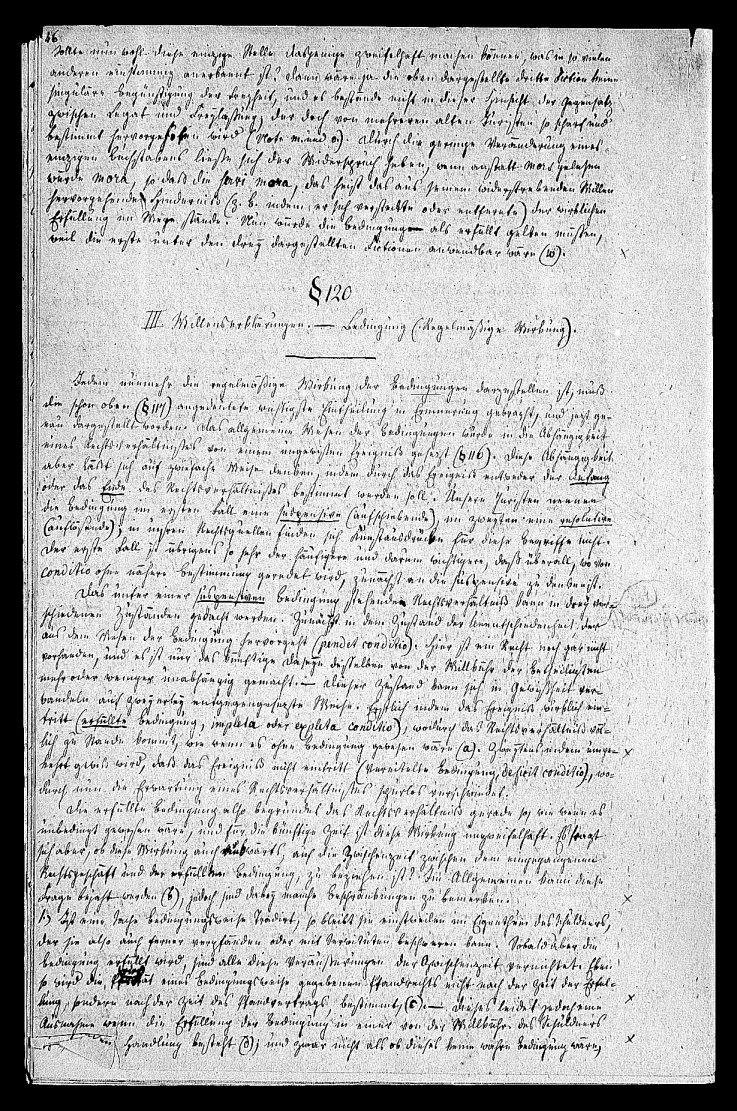 46
Sollte nun wohl diese einzige Stelle dasjenige zweifelhaft machen können, was in so vielen
anderen einstimmig anerkannt ist? Dann wäre ja die oben dargestellte dritte Fiction keine
singuläre Begünstigung der Freyheit, und es bestände nicht in dieser Hinsicht der Gegensatz
zwischen Legat und Freylassung, der doch von mehreren alten Juristen so scharf und
bestimmt hervorgehoben wird (Note m. und o). Durch die geringe Veränderung eines
einzigen Buchstabens ließe sich der Widerspruch heben, wenn anstatt mors gelesen
würde mora, so daß die Stari mora, das heißt das aus seinem widerstrebenden Willen
hervorgehende Hinderniß (z. B. indem er sich versteckte oder entfernte) der wirklichen
Erfüllung im Wege stände. Nun würde die Bedingung als erfüllt gelten müssen,
weil die erste unter den drey dargestellten Fictionen anwendbar wäre (w).
§ 120
III. Willenserklärungen. — Bedingung (Regelmäßige Wirkung).
Indem nunmehr die regelmäßige Wirkung der Bedingungen darzustellen ist, muß
die schon oben (§ 117) angedeutete wichtigste Eintheilung in Erinnerung gebracht, und jetzt ge-
nau dargestellt werden. Das allgemeine Wesen der Bedingungen wurde in die Abhängigkeit
eines Rechtsverhältnisses von einem ungewissen Ereigniß gesetzt (§ 116). Diese Abhängigkeit
aber läßt sich auf zweifache Weise denken, indem durch das Ereigniß entweder der Anfang
oder das Ende des Rechtsverhältnisses bestimmt werden soll. Unsere Juristen nennen
die Bedingung im ersten Fall eine suspensive (aufschiebende), im zweyten eine resolutive
(auflösende); in unsren Rechtsquellen finden sich Kunstausdrücke für diese Begriffe nicht.
Der erste Fall ist übrigens so sehr der häufigere und darum wichtigere, daß überall, wo von
conditio ohne nähere Bestimmung geredet wird, zunächst an die suspensive zu denken ist.
Das unter einer suspensiven Bedingung stehende Rechtsverhältniß kann in drey ver-
schiedenen Zuständen gedacht werden. Zunächst in dem Zustand der Unentschiedenheit der
aus dem Wesen der Bedingung hervorgeht (pendet conditio). Hier ist ein Recht noch gar nicht
vorhanden, und es ist nur das künftige Daseyn desselben von der Willkühr der Betheiligten
mehr oder weniger unabhängig gemacht. — Dieser Zustand kann sich in Gewißheit ver-
wandeln auf zweyerley entgegengesetzte Weise. Erstlich indem das Ereigniß wirklich ein-
tritt (erfüllte Bedingung, impleta oder expleta conditio), wodurch das Rechtsverhältniß völ-
lig zu Stande kommt, wie wenn es ohne Bedingung gewesen wäre (a). Zweytens indem umge-
kehrt gewiß wird, daß das Ereigniß nicht eintritt (vereitelte Bedingung, deficit conditio), wo-
durch nun die Erwartung eines Rechtsverhältnisses spurlos verschwindet.
Die erfüllte Bedingung also begründet das Rechtsverhältniß gerade so, wie wenn es
unbedingt gewesen wäre, und für die künftige Zeit ist diese Wirkung unzweifelhaft. Es fragt
sich aber, ob diese Wirkung auch rückwärts, auf die Zwischenzeit zwischen dem eingegangenen
Rechtsgeschäft und der erfüllten Bedingung, zu beziehen ist? Im Allgemeinen kann diese
Frage bejaht werden (b), jedoch sind dabey manche Beschränkungen zu bemerken.
1) Ist eine Sache bedingungsweise tradirt, so bleibt sie einstweilen im Eigenthum des Schuldners,
der sie also auch ferner verpfänden oder mit Servituten beschweren kann. Sobald aber die
Bedingung erfüllt wird, sind alle diese Veräußerungen der Zwischenzeit vernichtet. Eben
so wird die Priorität eines bedingungsweise gegebenen Pfandrechts nicht nach der Zeit der Erfül-
lung, sondern nach der Zeit des Pfandvertrags, bestimmt (c). — Dieses leidet jedoch eine
Ausnahme wenn die Erfüllung der Bedingung in einer von der Willkühr des Schuldners
Handlung besteht (d); und zwar nicht als ob dieses keine wahre Bedingung wäre,